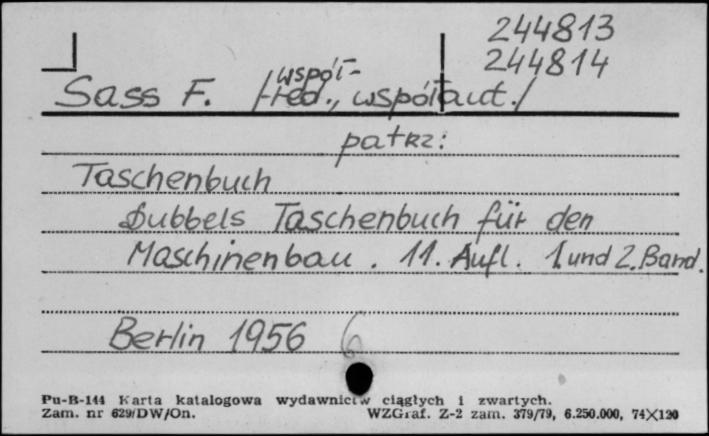 244813
244814
współ-
Sass F. /-red., współaut./
patrz:
Taschenbuch
Dubbels Taschenbuch für den
Maschinenbau. 11. Aufl. 1. und 2. Band.
Berlin 1956 6
Pu-B-144 Karta katalogowa wydawnictw ciągłych i zwartych.
Zam. nr 629/DW/On. WZGraf. Z-2 zam. 379/79, 6.250.000, 74×120